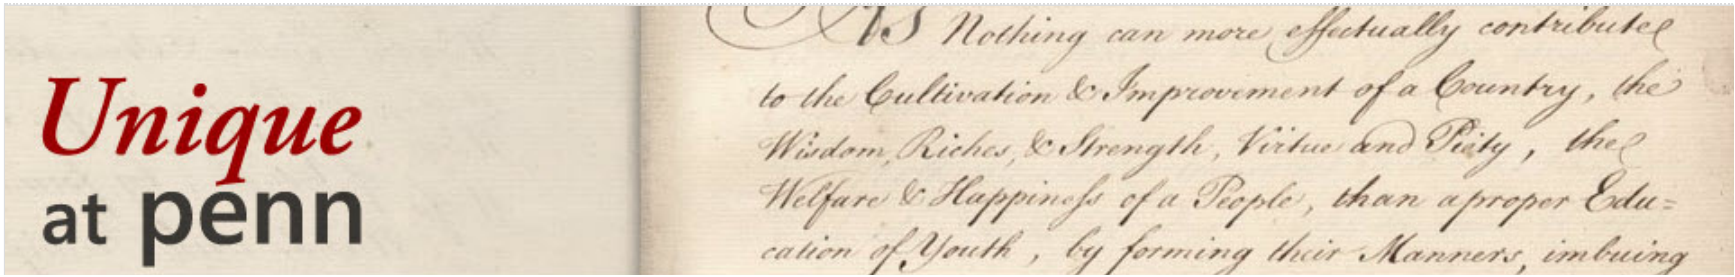 Unique
at penn
As Nothing can more effectually contribute
to the Cultivation & Improvement of a Country, the
Wisdom, Riches, & Strength, Virtue and Piety, the
Welfare & Happiness of a People, than a proper Edu=
cation of Youth, by forming their Manners, imbuing